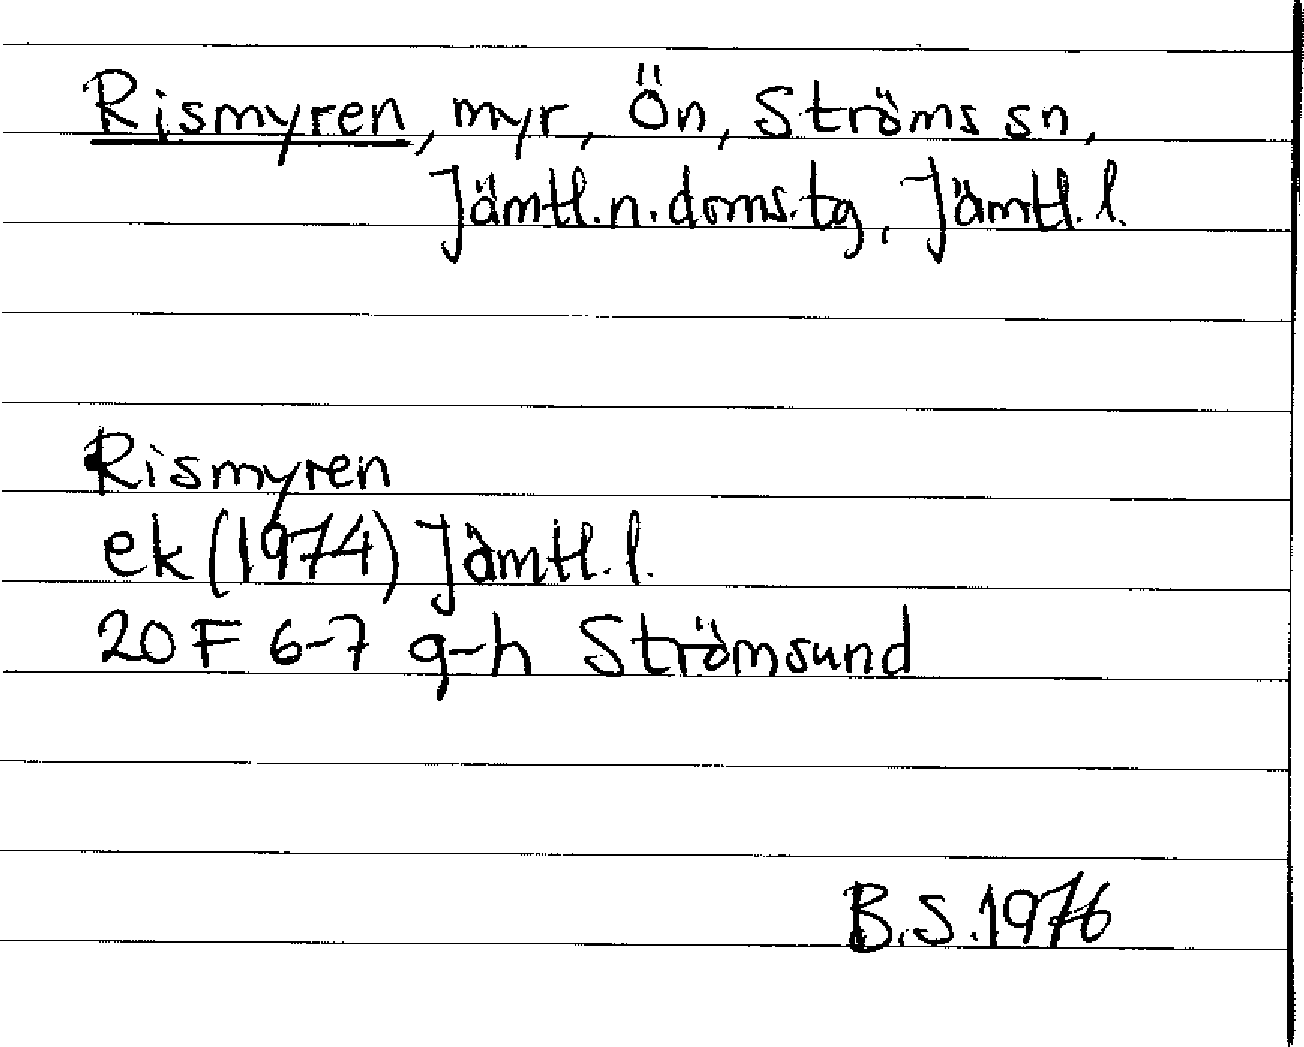 Rismyren, myr, Ön, Ströms sn,
Jämtl.n.doms.tg, Jämtl.l.
Rismyren
ek (1974) Jämtl.l.
20F 6-7 g-h Strömsund
B.S.1976